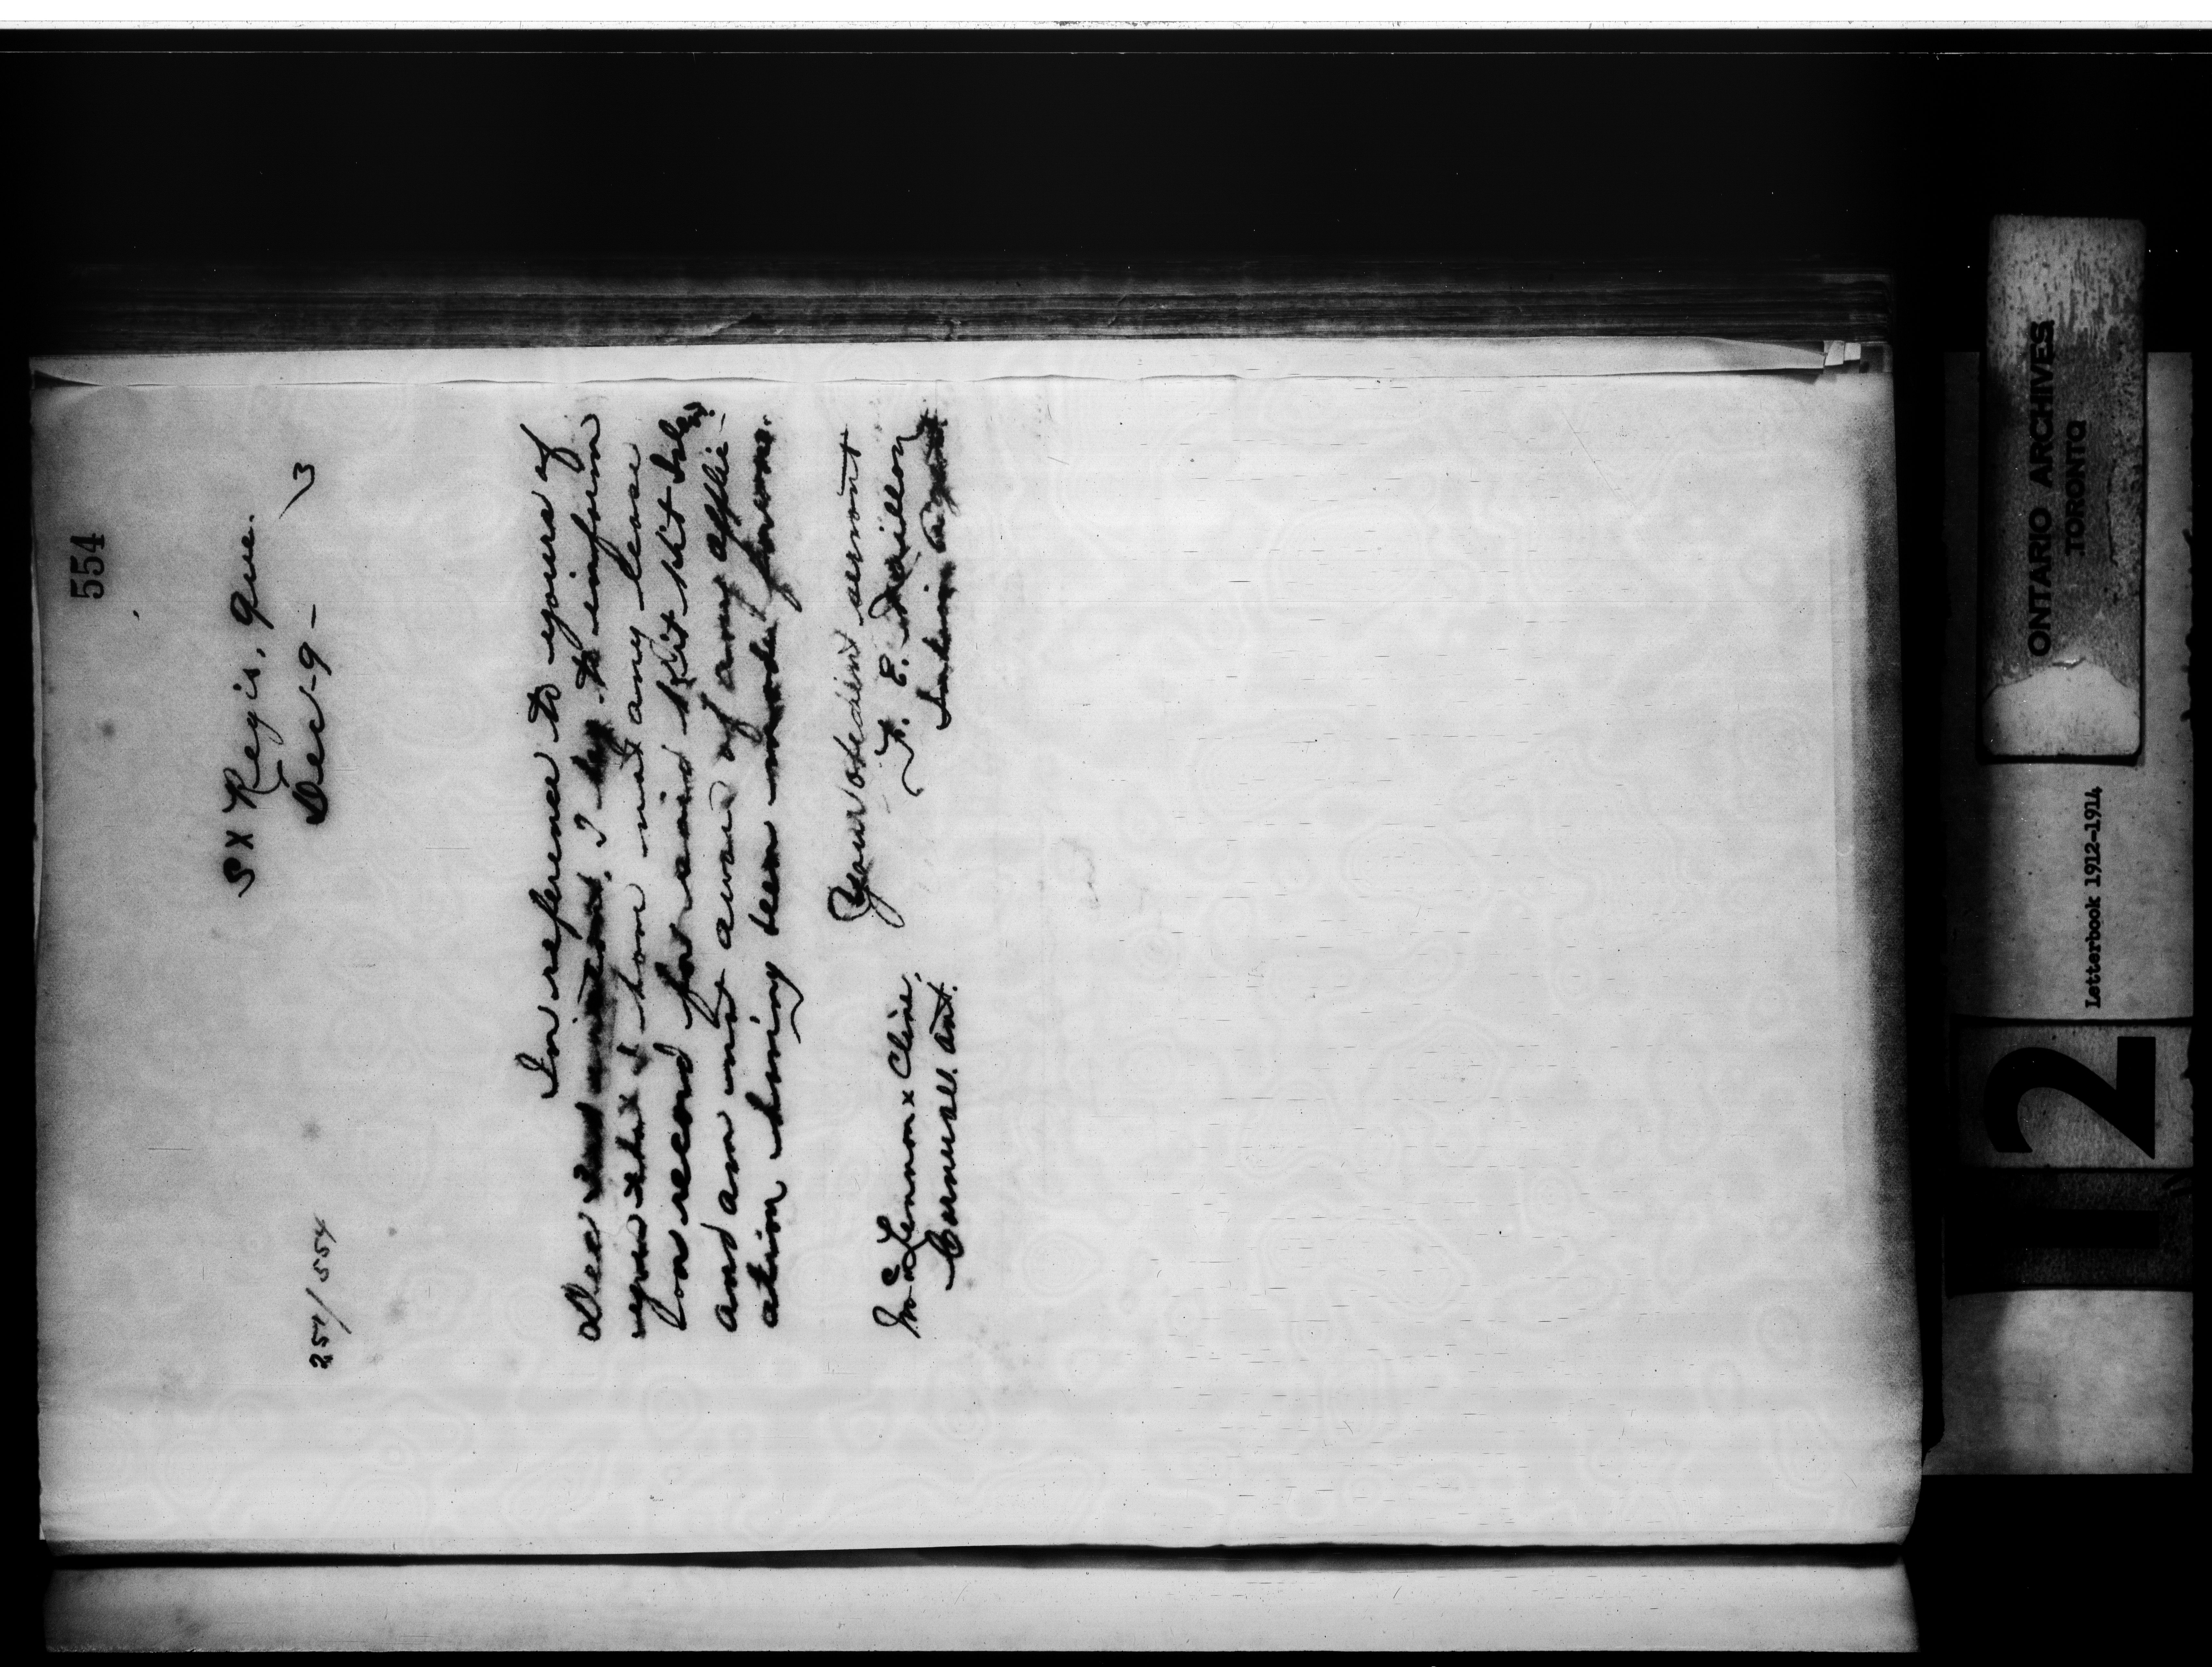 554
St Regis, Que.
Dec 9 - 3
251/554
In reference to yours of
Dec 2nd instant. I beg to inform
you that I have not any lease
on record for said
and am not aware of any applic-
ation having been made for one.
Your obedient servant
F. E. Taillon
Indian Agent
McLennan & Cline,
Cornwall Ont.
ONTARIO ARCHIVES
TORONTO
Letterbook 1912-1914
2